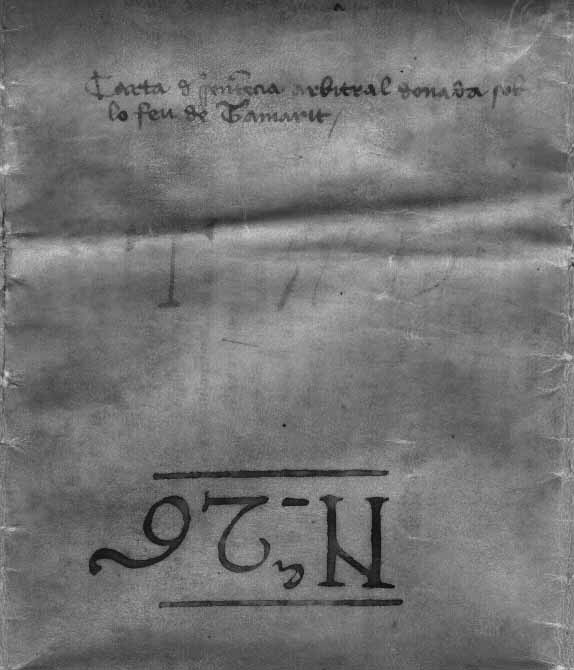 Carta d sentẽcia arbitral donada sob
lo feu de Tamarit
N 26